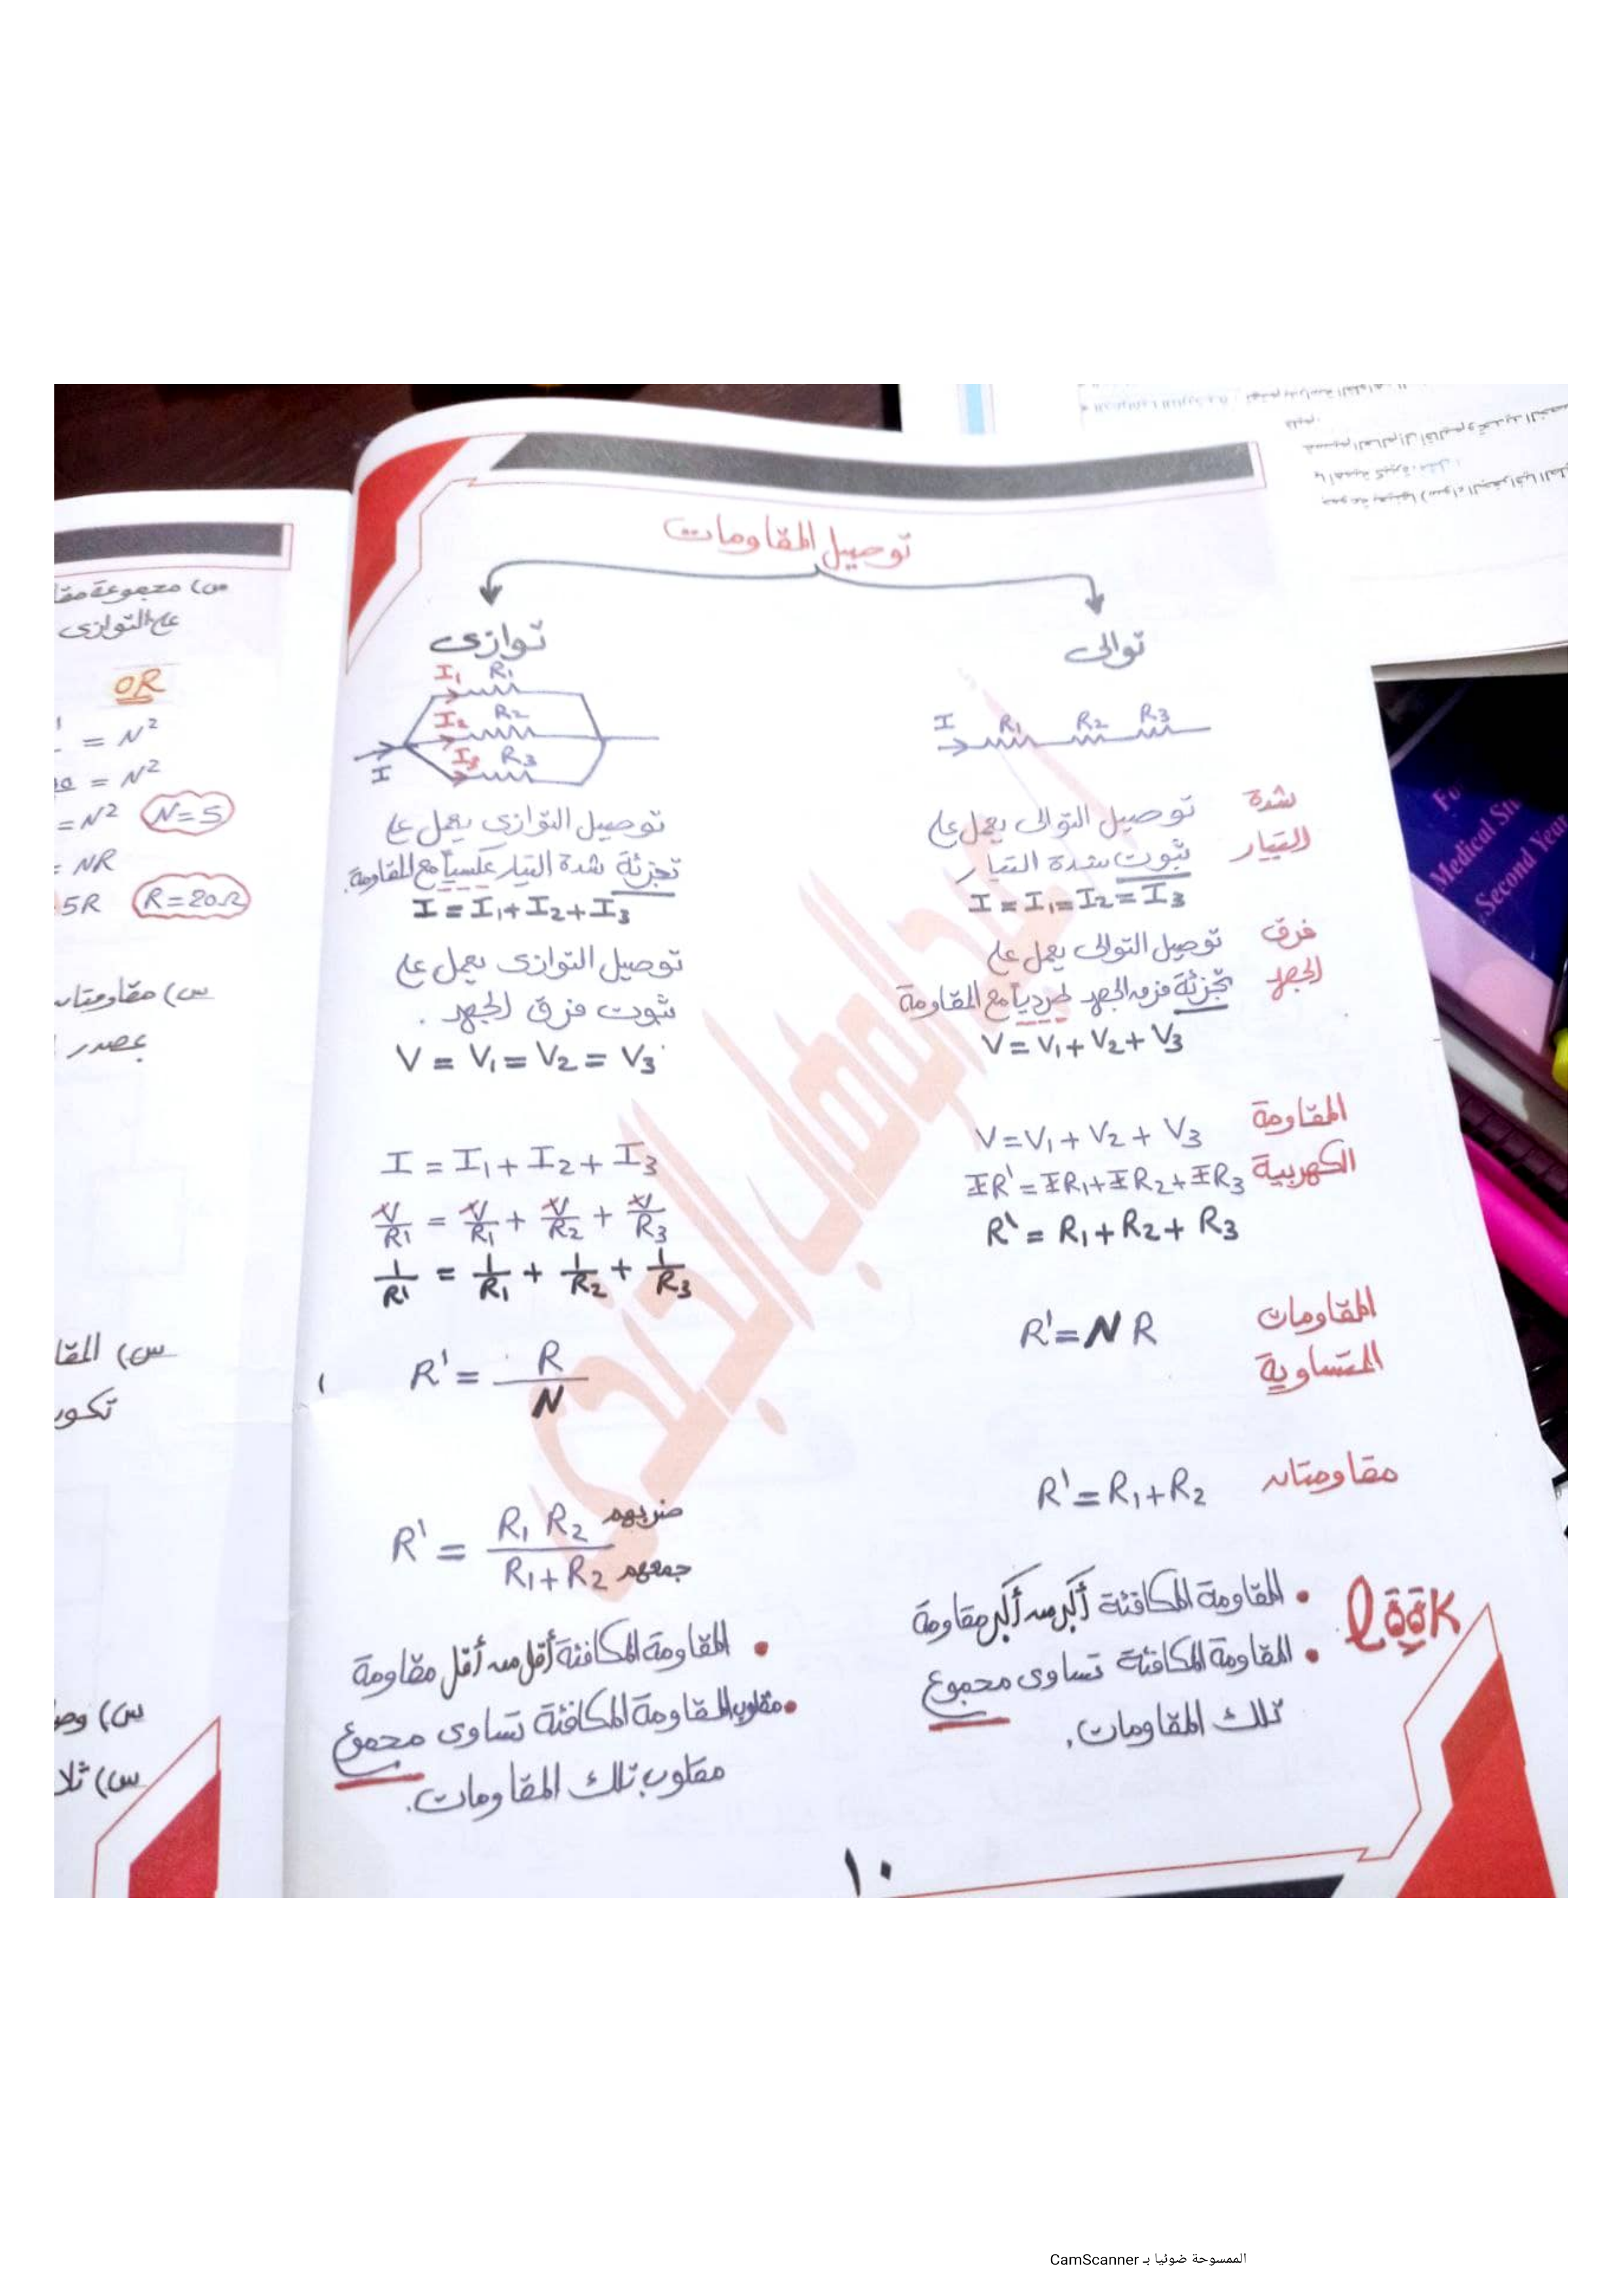 توصيل المقاومات
توالى
I R1 R2 R3
شدة التيار
توصيل التوالى يعمل على
ثبوت شدة التيار
I = I1 = I2 = I3
فرق الجهد
توصيل التوالى يعمل على
تجزئة فرق الجهد طردياً مع المقاومة
V = V1 + V2 + V3
المقاومة الكهربية
V = V1 + V2 + V3
IR' = IR1 + IR2 + IR3
R' = R1 + R2 + R3
المقاومات المتساوية
R' = N R
مقاومتان
R' = R1 + R2
look
• المقاومة المكافئة أكبر من أكبر مقاومة
• المقاومة المكافئة تساوى مجموع
تلك المقاومات.
توازى
I1 R1
I2 R2
I3 R3
I
توصيل التوازى يعمل على
تجزئة شدة التيار عكسياً مع المقاومة.
I = I1 + I2 + I3
توصيل التوازى يعمل على
ثبوت فرق الجهد .
V = V1 = V2 = V3
I = I1 + I2 + I3
V/R' = V/R1 + V/R2 + V/R3
1/R' = 1/R1 + 1/R2 + 1/R3
R' = R/N
R' = R1 R2 / R1 + R2 ضربهم جمعهم
• المقاومة المكافئة أقل من أقل مقاومة
• مقلوب المقاومة المكافئة تساوى مجموع
مقلوب تلك المقاومات.
١٠
س) مجموعة
على التوازى
OR
= N²
= N²
= N² N = 5
= NR
5R R = 20Ω
س) مقاومتان
بمصدر
س)
تكون
س)
س)
For
Medical
Second Year
الممسوحة ضوئيا بـ CamScanner